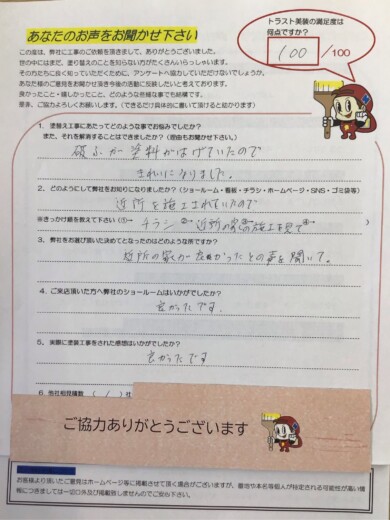 あなたのお声をお聞かせ下さい
トラスト美装の満足度は
何点ですか?
100/100
この度は、弊社に工事のご依頼を頂きまして、ありがとうございました。
世の中にはまだ、塗り替えのことを知らない方がたくさんいらっしゃいます。
その方たちに良く知っていただくために、アンケートへ協力していただけないでしょうか。
あなた様のご意見をお聞かせ頂き今後の活動に反映したいと考えております。
良かったこと・嬉しかったこと、どのような些細な事でも結構です。
是非、ご協力よろしくお願いします。(できるだけ具体的に書いて頂けると助かります)
1. 塗替え工事にあたってどのような事でお悩みでしたか?
また、それを解消することはできましたか?(理由もお聞かせ下さい。)
塗料がはげていたので
きれいになりました。
2. どのようにして弊社をお知りになりましたか?(ショールーム・看板・チラシ・ホームページ・SNS・ゴミ袋等)
近所を施工されていたので
※きっかけ順を教えて下さい(①→チラシ ②→近所の家の施工を見て ③→ )
3. 弊社をお選び頂いた決めてとなったのはどのような所ですか?
近所の家の方が良かったとの声を聞いて。
4. ご来店頂いた方へ弊社のショールームはいかがでしたか?
良かったです.
5. 実際に塗装工事をされた感想はいかがでしたか?
良かったです
6. 他社相見積数 ( 1 )社
ご協力ありがとうございます
お客様より頂いたご意見はホームページ等に掲載させて頂く場合がございますが、番地や本名等個人が特定される可能性が高い情
報につきましては一切口外及び掲載致しませんのでご安心下さい。